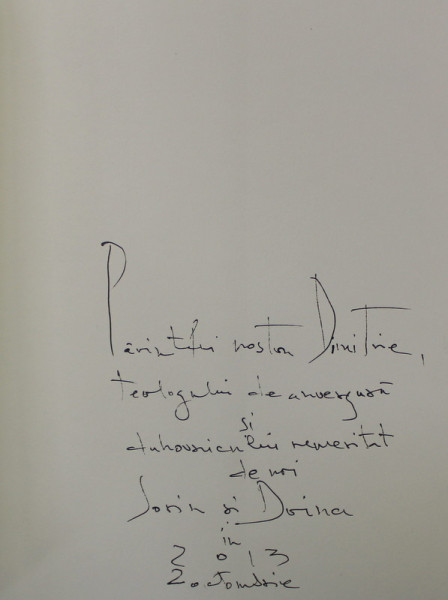 Părintelui nostru Dimitrie,
teologului de anvergură
și
duhovnicului nemeritat
de noi
Sorin și Doina
în
2013
2 octombrie